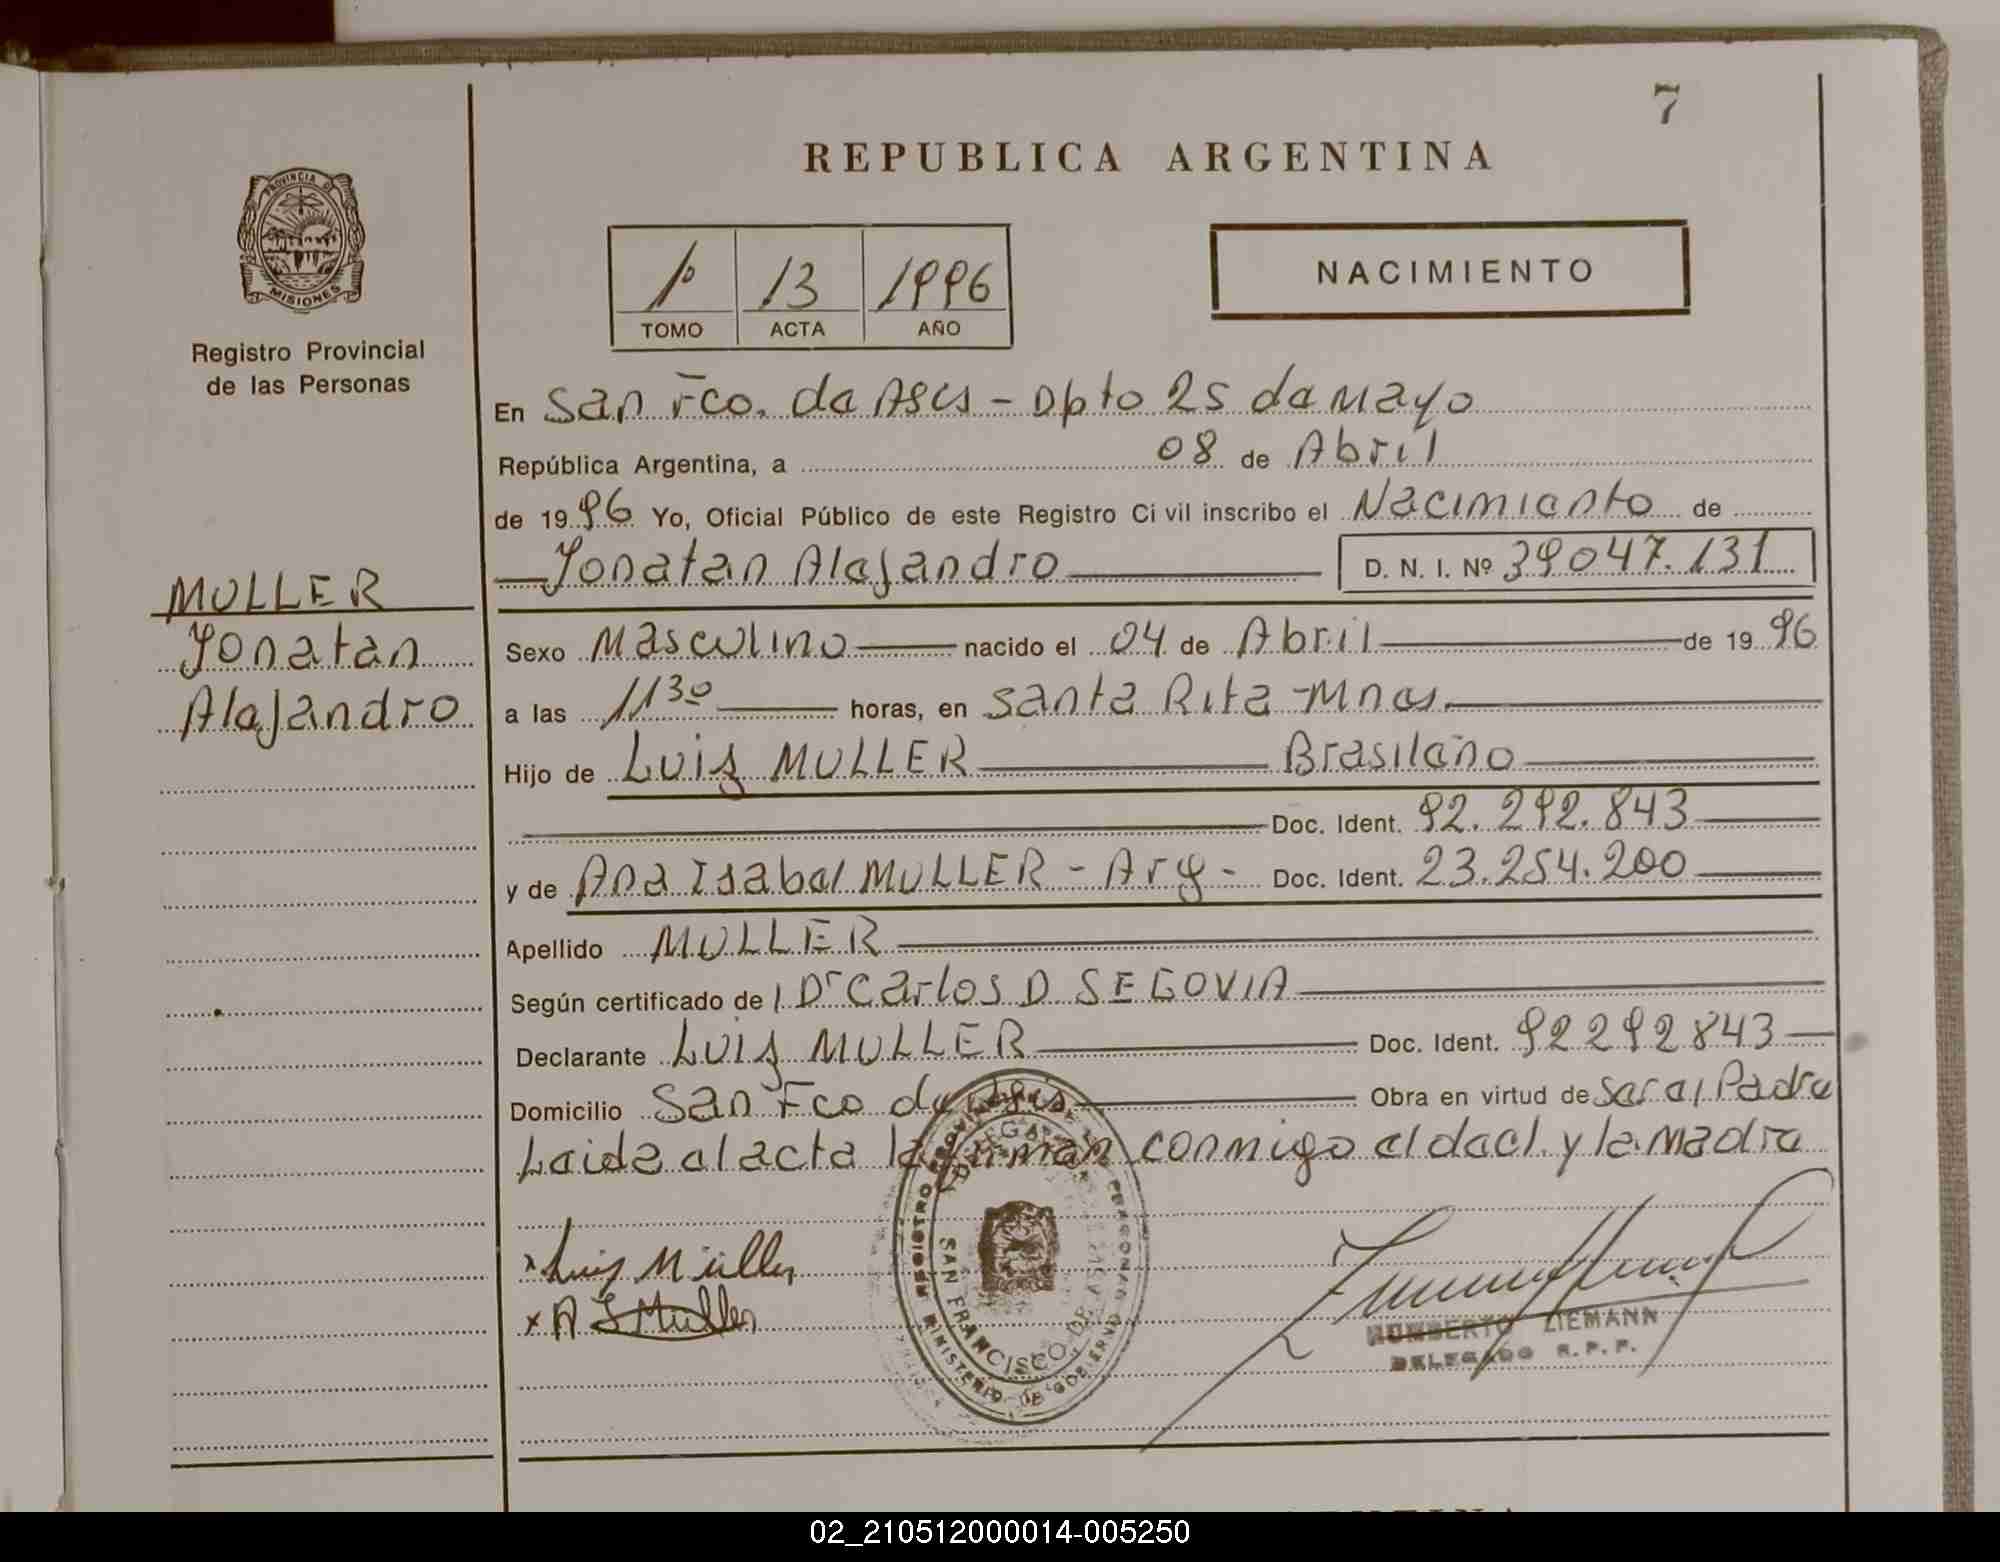 7
REPUBLICA ARGENTINA
PROVINCIA DE
MISIONES
Registro Provincial
de las Personas
1º 13 1996
TOMO ACTA AÑO
NACIMIENTO
En San Fco. de Asís - Dpto 25 de Mayo
República Argentina, a 08 de Abril
de 1996 Yo, Oficial Público de este Registro Civil inscribo el Nacimiento de
Yonatan Alejandro D. N. I. Nº 39047.131
MULLER
Yonatan
Alejandro
Sexo Masculino nacido el 04 de Abril de 1996
a las 11 30 horas, en Santa Rita - Mnes.
Hijo de Luis MULLER Brasileño
Doc. Ident. 92.292.843
y de Ana Isabel MULLER - Arg - Doc. Ident. 23.254.200
Apellido MULLER
Según certificado de Dr Carlos D SEGOVIA
Declarante Luis MULLER Doc. Ident. 92292843
Domicilio San Fco de Asis Obra en virtud de Ser el Padre
Leida el acta la firman conmigo el decl. y la Madre
x Luis Müller
x A I Muller
REGISTRO PROVINCIAL DE LAS PERSONAS
MINISTERIO DE GOBIERNO
SAN FRANCISCO DE ASIS
HUMBERTO ZIEMANN
DELEGADO R. P. P.
02_210512000014-005250